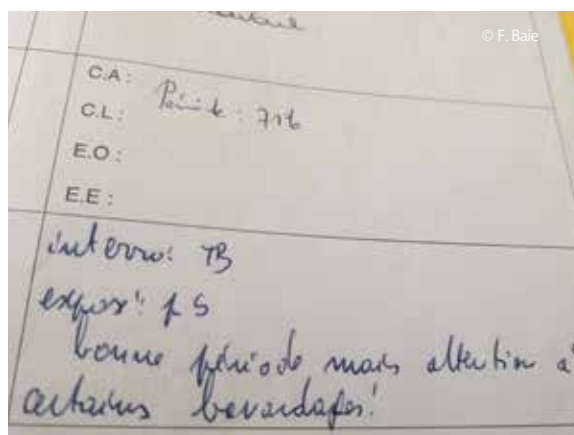 © F. Baie
C.A :
Période : 7TB
C.L :
E.O :
E.E :
interro: TB
exposé: pS
bonne période mais attention à
certains bavardages!